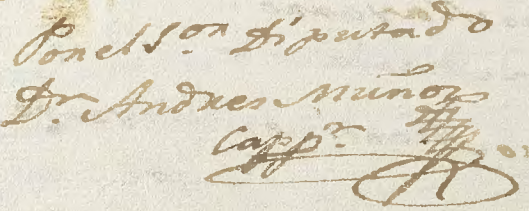 Por el S.on Diputado
Dr. Andres Muñoz
Capp.n